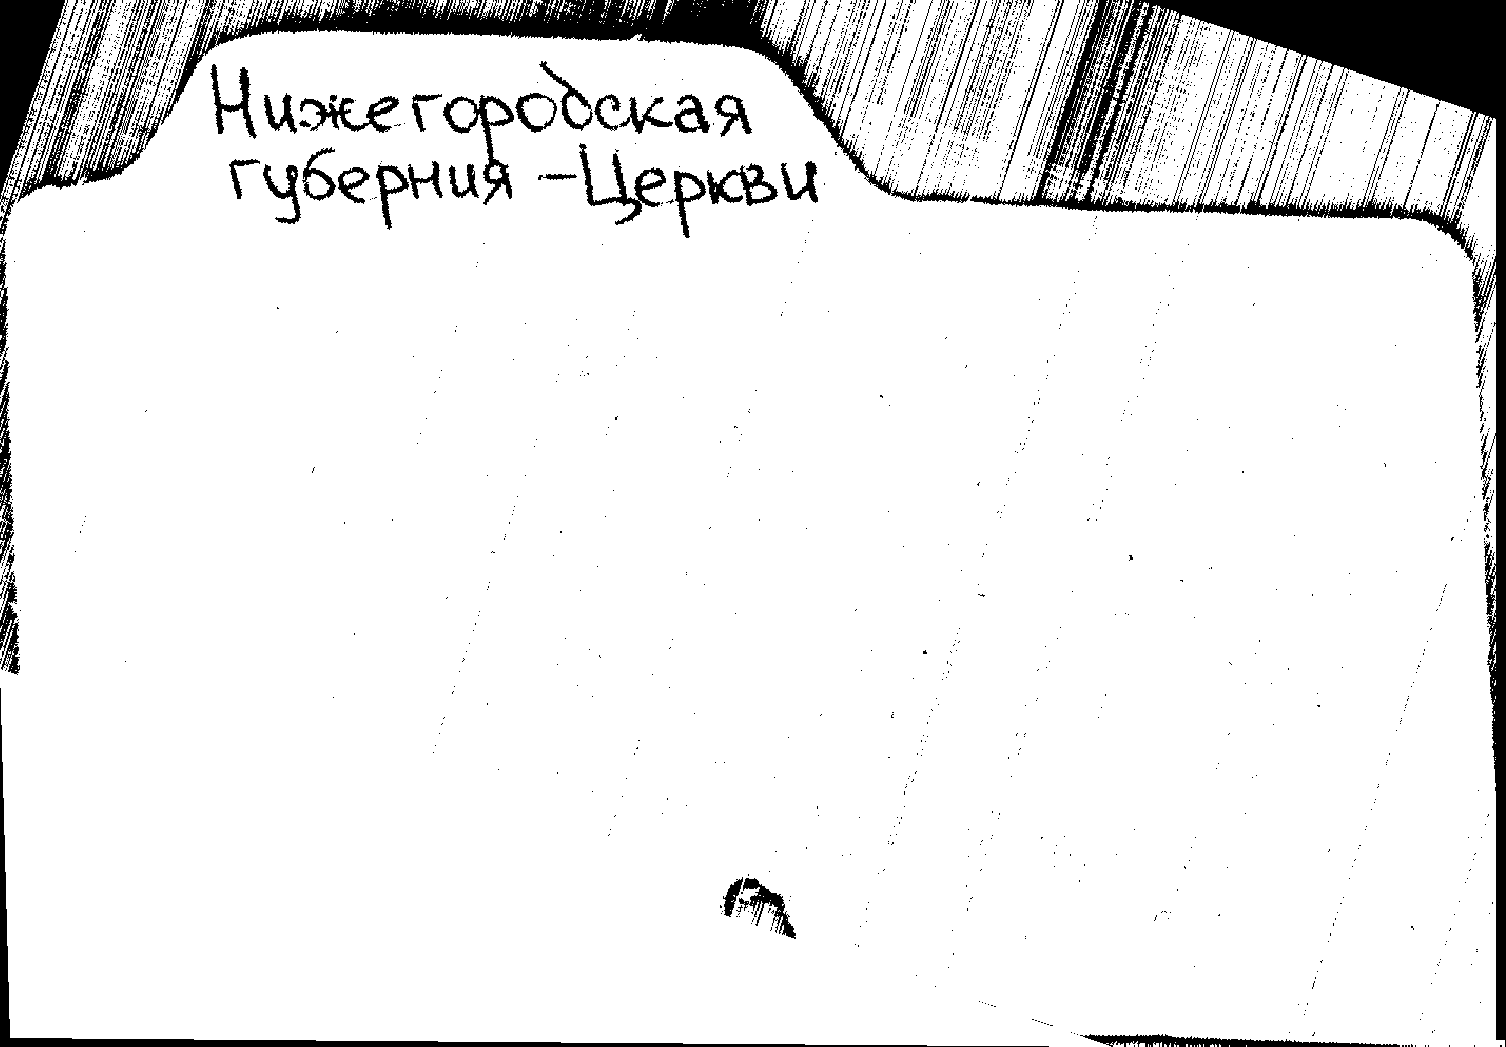 Нижегородская
губерния - Церкви